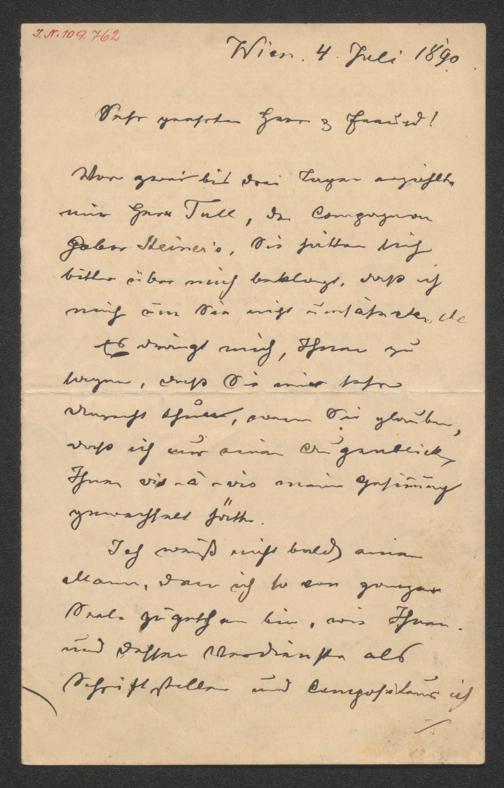 I.N. 109.762
Wien. 4. Juli 1890.
Sehr geehrter Herr & Freund!
Vor zwei bis drei Tagen erzählte
mir Herr Tull, der Compagnon
Gabor Steiner's, Sie hätten sich
bitter über mich beklagt, daß ich
mich um Sie nicht etc
Es drängt mich, Ihnen zu
sagen, daß Sie mir sehr
Unrecht thun, wenn Sie glauben,
daß ich nur einen Augenblick
Ihnen vis-à-vis meine Gesinnung
gewechselt hätte.
Ich weiß nicht bald einen
Mann, dem ich so von ganzer
Seele zugethan bin, wie Ihnen.
und dessen Verdienste als
Schriftsteller und Compositeur ich